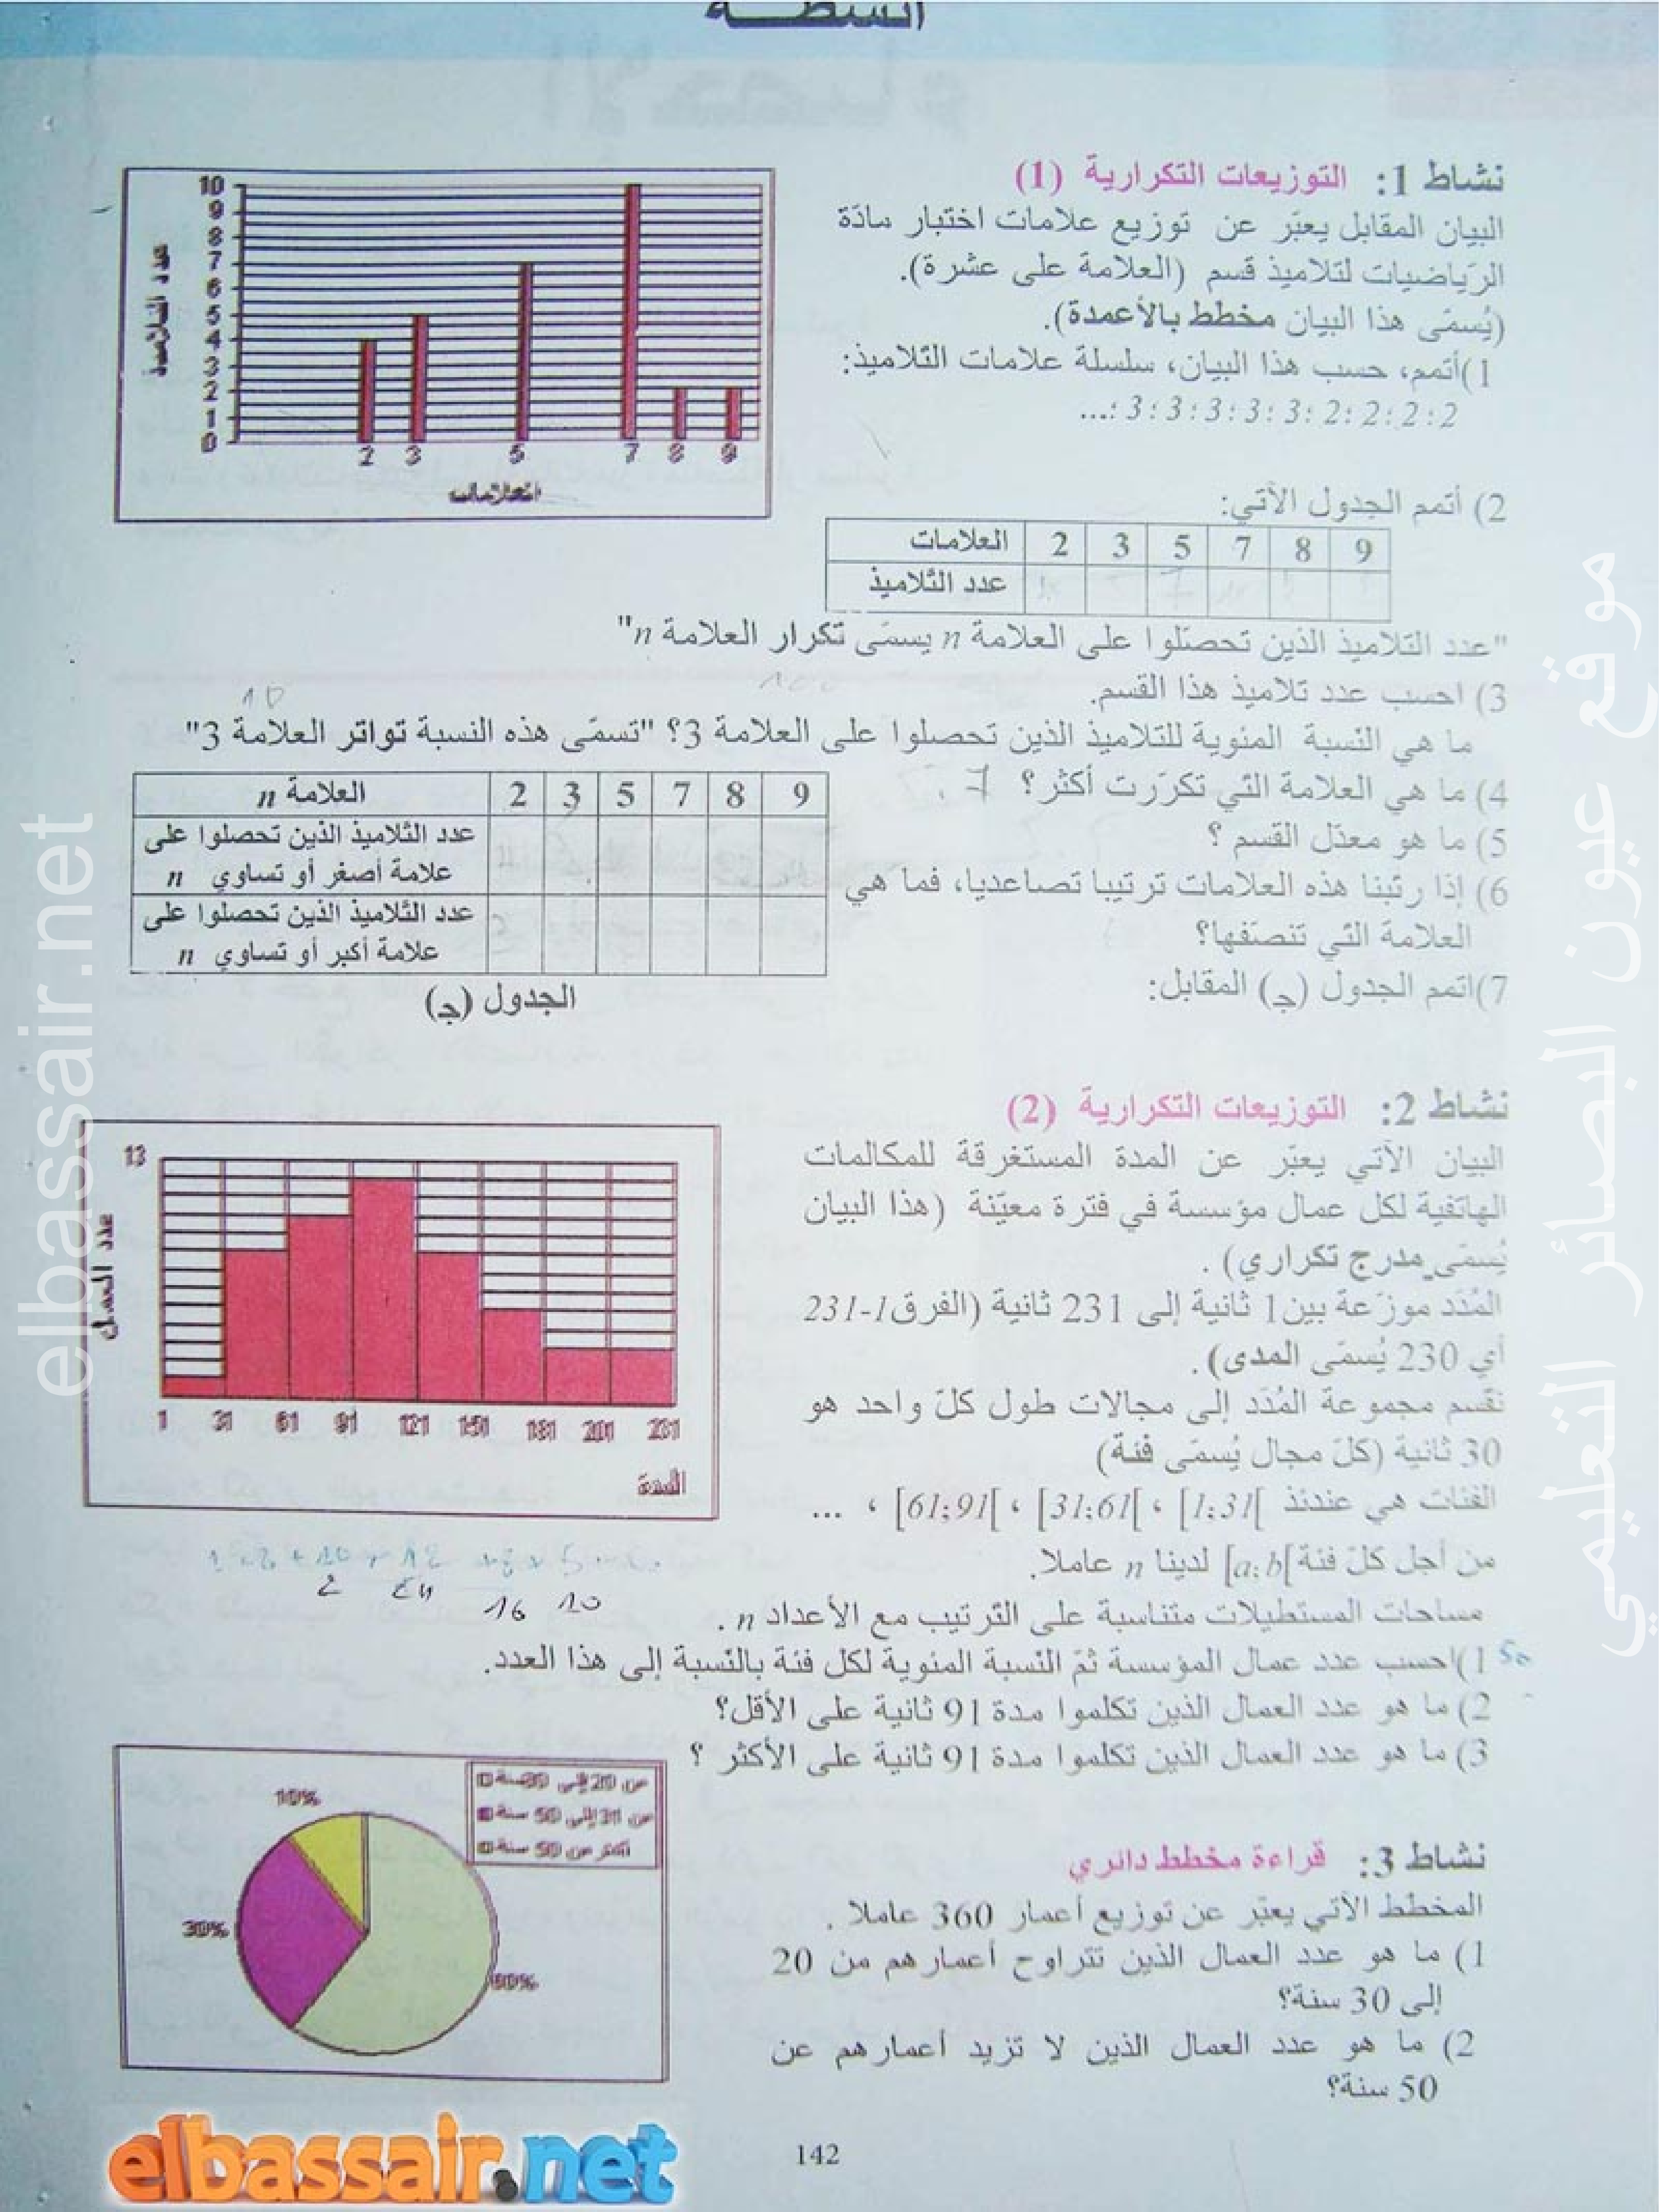 أنشطة
نشاط 1: التوزيعات التكرارية (1)
البيان المقابل يعبّر عن توزيع علامات اختبار مادّة
الرّياضيات لتلاميذ قسم (العلامة على عشرة).
(يُسمّى هذا البيان مخطط بالأعمدة).
1)أتمم، حسب هذا البيان، سلسلة علامات التّلاميذ:
2 ; 2 ; 2 ; 2 ; 3 ; 3 ; 3 ; 3 ; 3 ; ...
10
9
8
7
6
5
4
3
2
1
0
2 3 5 7 8 9
عدد التلاميذ
العلامات
2) أتمم الجدول الآتي:
العلامات 2 3 5 7 8 9
عدد التّلاميذ
"عدد التّلاميذ الذين تحصّلوا على العلامة n يسمّى تكرار العلامة n"
3) احسب عدد تلاميذ هذا القسم.
ما هي النّسبة المئوية للتلاميذ الذين تحصلوا على العلامة 3؟ "تسمّى هذه النسبة تواتر العلامة 3"
4) ما هي العلامة التّي تكرّرت أكثر؟ 7
5) ما هو معدّل القسم ؟
6) إذا رتّبنا هذه العلامات ترتيبا تصاعديا، فما هي
العلامة التّي تنصّفها؟
7)اتمم الجدول (ج) المقابل:
العلامة n 2 3 5 7 8 9
عدد التّلاميذ الذين تحصلوا على
علامة أصغر أو تساوي n
عدد التّلاميذ الذين تحصلوا على
علامة أكبر أو تساوي n
الجدول (ج)
نشاط 2: التوزيعات التكرارية (2)
البيان الآتي يعبّر عن المدة المستغرقة للمكالمات
الهاتفية لكل عمال مؤسسة في فترة معيّنة (هذا البيان
يُسمّى مدرج تكراري) .
المُدَد موزّعة بين1 ثانية إلى 231 ثانية (الفرق 231-1
أي 230 يُسمّى المدى).
نقسم مجموعة المُدَد إلى مجالات طول كلّ واحد هو
30 ثانية (كلّ مجال يُسمّى فئة)
الفئات هي عندئذ [1;31[ ، [31;61[ ، [61;91[ ، ...
من أجل كلّ فئة [a;b[ لدينا n عاملا.
مساحات المستطيلات متناسبة على الترتيب مع الأعداد n .
13
عدد العمال
1 31 61 91 121 151 181 201 231
المدة
2 24 16 10
1)احسب عدد عمال المؤسسة ثمّ النّسبة المئوية لكل فئة بالنّسبة إلى هذا العدد.
50
2) ما هو عدد العمال الذين تكلموا مدة 91 ثانية على الأقل؟
3) ما هو عدد العمال الذين تكلموا مدة 91 ثانية على الأكثر ؟
نشاط 3: قراءة مخطط دائري
المخطط الآتي يعبّر عن توزيع أعمار 360 عاملا .
1) ما هو عدد العمال الذين تتراوح أعمارهم من 20
إلى 30 سنة؟
2) ما هو عدد العمال الذين لا تزيد أعمارهم عن
50 سنة؟
من 20 إلى 30 سنة
من 31 إلى 50 سنة
أكثر من 50 سنة
10%
30%
60%
142
elbassair.net
elbassair.net
موقع عيون البصائر التعليمي